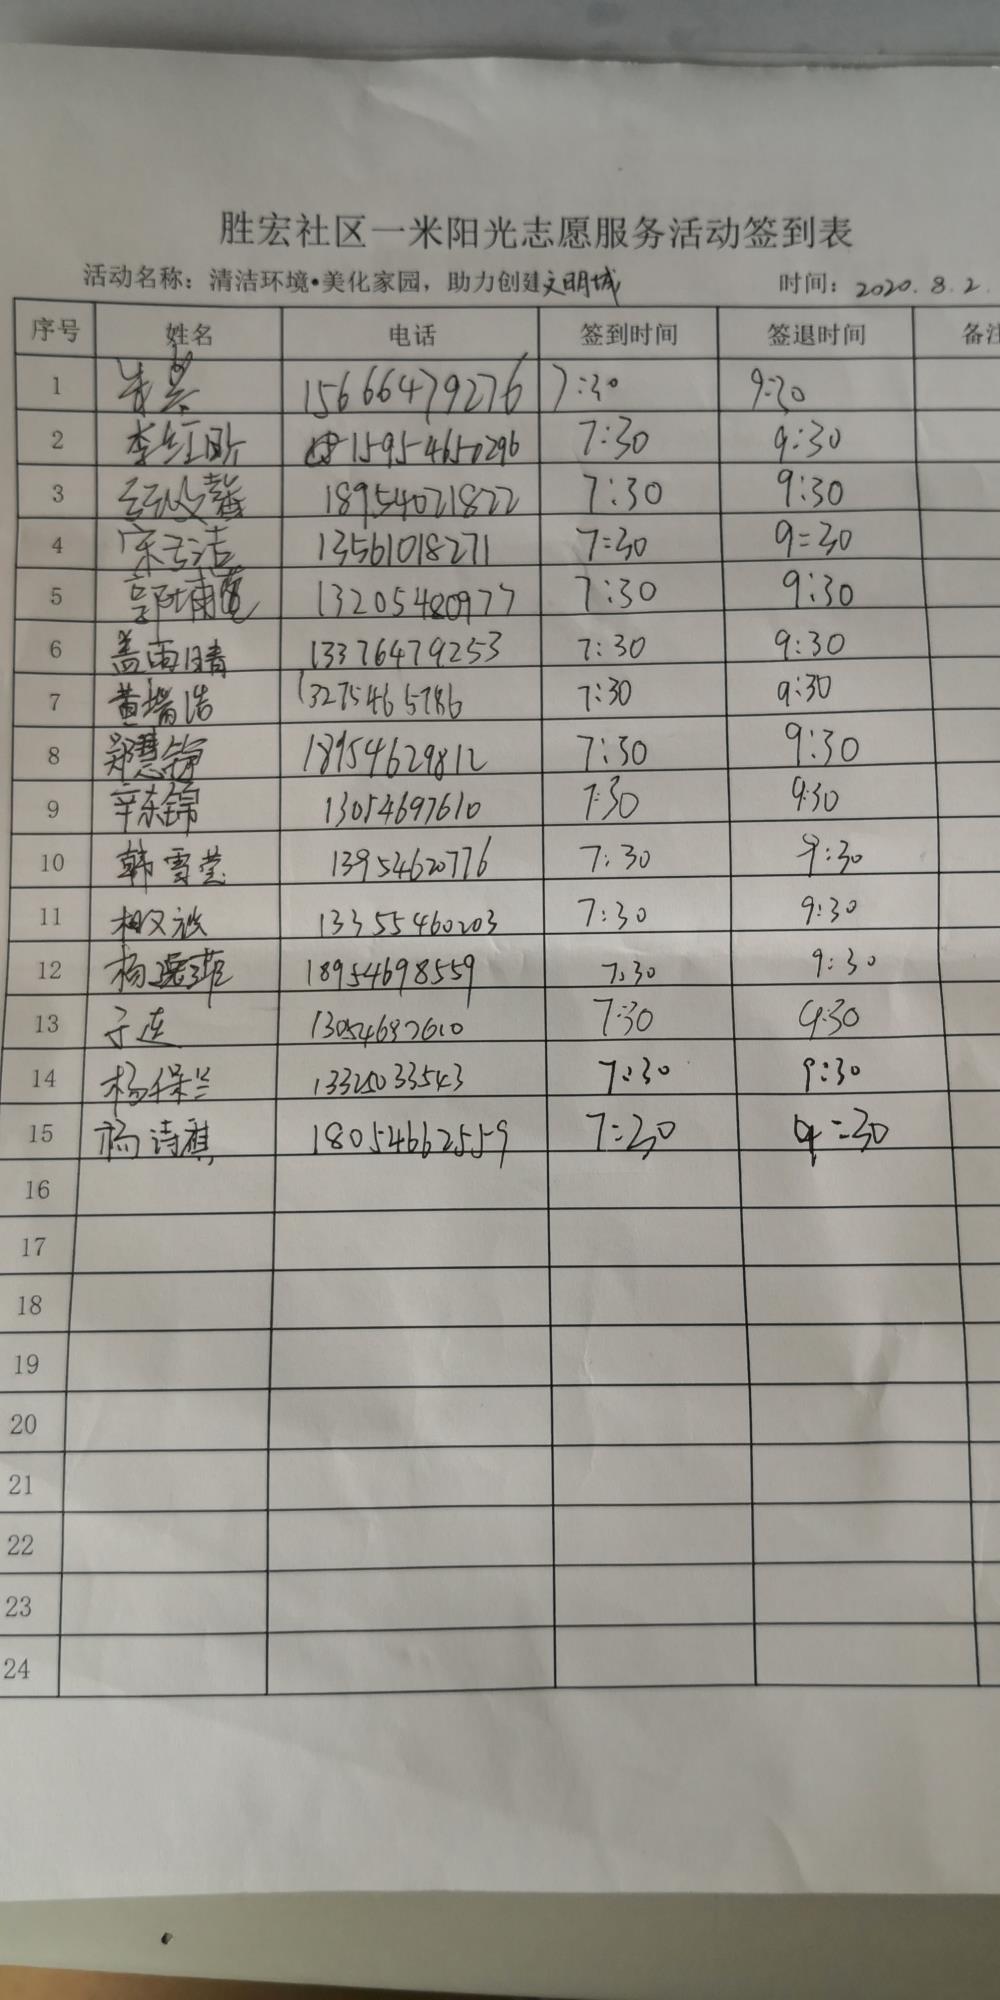 胜宏社区一米阳光志愿服务活动签到表
活动名称：清洁环境•美化家园，助力创建文明城 时间：2020.8.2.
序号 姓名 电话 签到时间 签退时间 备注
1 15666479276 7:30 9:30
2 李红昕 15954650296 7:30 9:30
3 18954021822 7:30 9:30
4 宋云洁 13561018271 7:30 9=30
5 13205480977 7:30 9:30
6 盖雨晴 13376479253 7:30 9:30
7 黄瑞浩 13275465786 7:30 9:30
8 郑慧锦 18954629812 7:30 9:30
9 辛东锦 13054697610 7:30 9:30
10 韩雪莹 13954620776 7:30 9:30
11 13355460203 7:30 9:30
12 杨 18954698559 7:30 9:30
13 于连 13054697610 7:30 9:30
14 杨保兰 13325033543 7:30 9:30
15 杨诗祺 18054662559 7=30 9=30
16
17
18
19
20
21
22
23
24